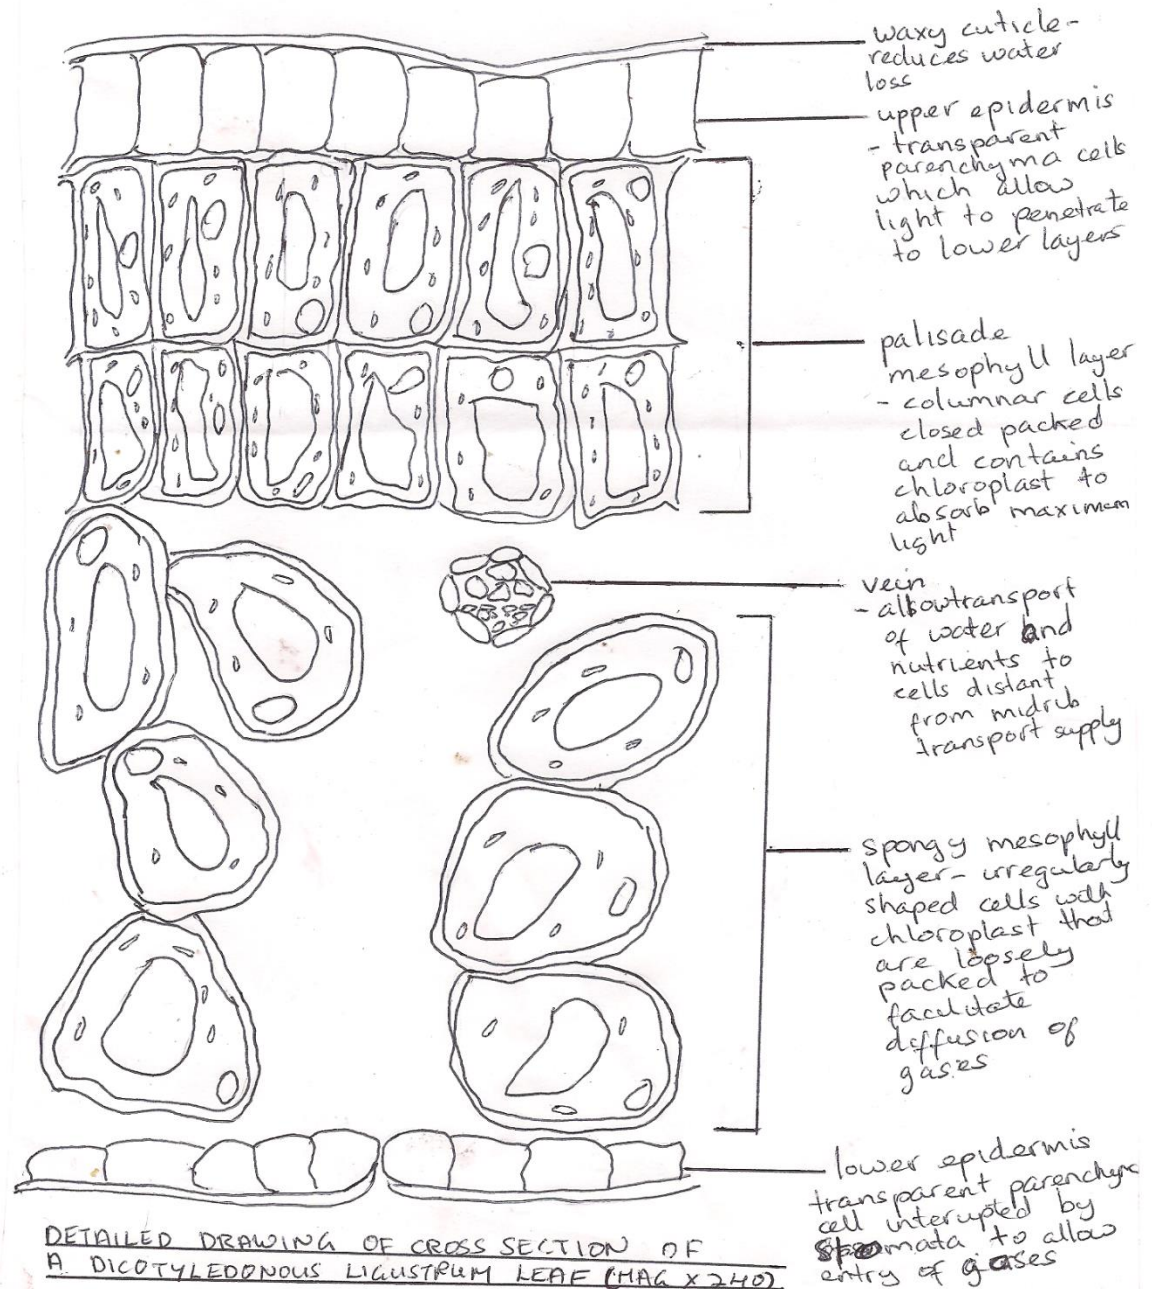 waxy cuticle-
reduces water
loss
upper epidermis
- transparent
parenchyma cells
which allow
light to penetrate
to lower layers
palisade
mesophyll layer
- columnar cells
closed packed
and contains
chloroplast to
absorb maximum
light
vein
- allowtransport
of water and
nutrients to
cells distant
from midrib
transport supply
spongy mesophyll
layer- irregularly
shaped cells with
chloroplast that
are loosely
packed to
facilitate
diffusion of
gases
lower epidermis
transparent parenchyma
cell interupted by
stomata to allow
entry of gases
DETAILED DRAWING OF CROSS SECTION OF
A DICOTYLEDONOUS LIGUSTRUM LEAF (MAG X 240)